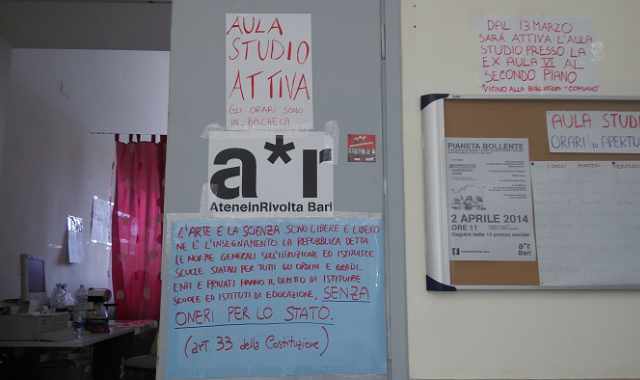 AULA
STUDIO
ATTIVA
GLI ORARI SONO
IN BACHECA
a*r
AteneinRivolta Bari
L'ARTE E LA SCIENZA SONO LIBERE E LIBERO
NE È L'INSEGNAMENTO. LA REPUBBLICA DETTA
LE NORME GENERALI SULL'ISTRUZIONE ED ISTITUISCE
SCUOLE STATALI PER TUTTI GLI ORDINI E GRADI.
ENTI E PRIVATI HANNO IL DIRITTO DI ISTITUIRE
SCUOLE ED ISTITUTI DI EDUCAZIONE, SENZA
ONERI PER LO STATO.
(art 33 della Costituzione)
DAL 13 MARZO
SARÀ ATTIVA L'AULA
STUDIO PRESSO LA
EX AULA VI AL
SECONDO PIANO
VICINO ALLA BIBLIOTECA "COMUNE"
AULA STUD
ORARI DI APERTU
PIANETA BOLLENTE
2 APRILE 2014
ORE 11
a*r
Bari